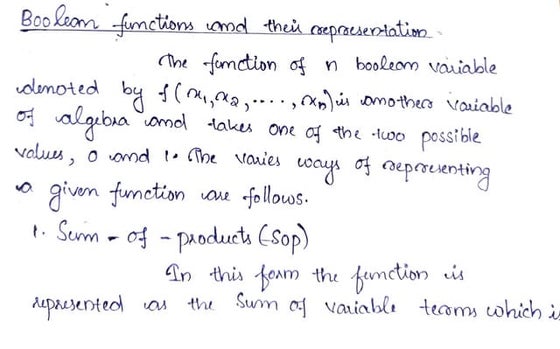 Boolean functions and their representation.
The function of n boolean variable
denoted by f(x₁, x₂, ...., xₙ) is another variable
of algebra and takes one of the two possible
values, 0 and 1. The varies ways of representing
a given function are follows.
1. Sum - of - products (SOP)
In this form the function is
represented as the Sum of variable terms which i